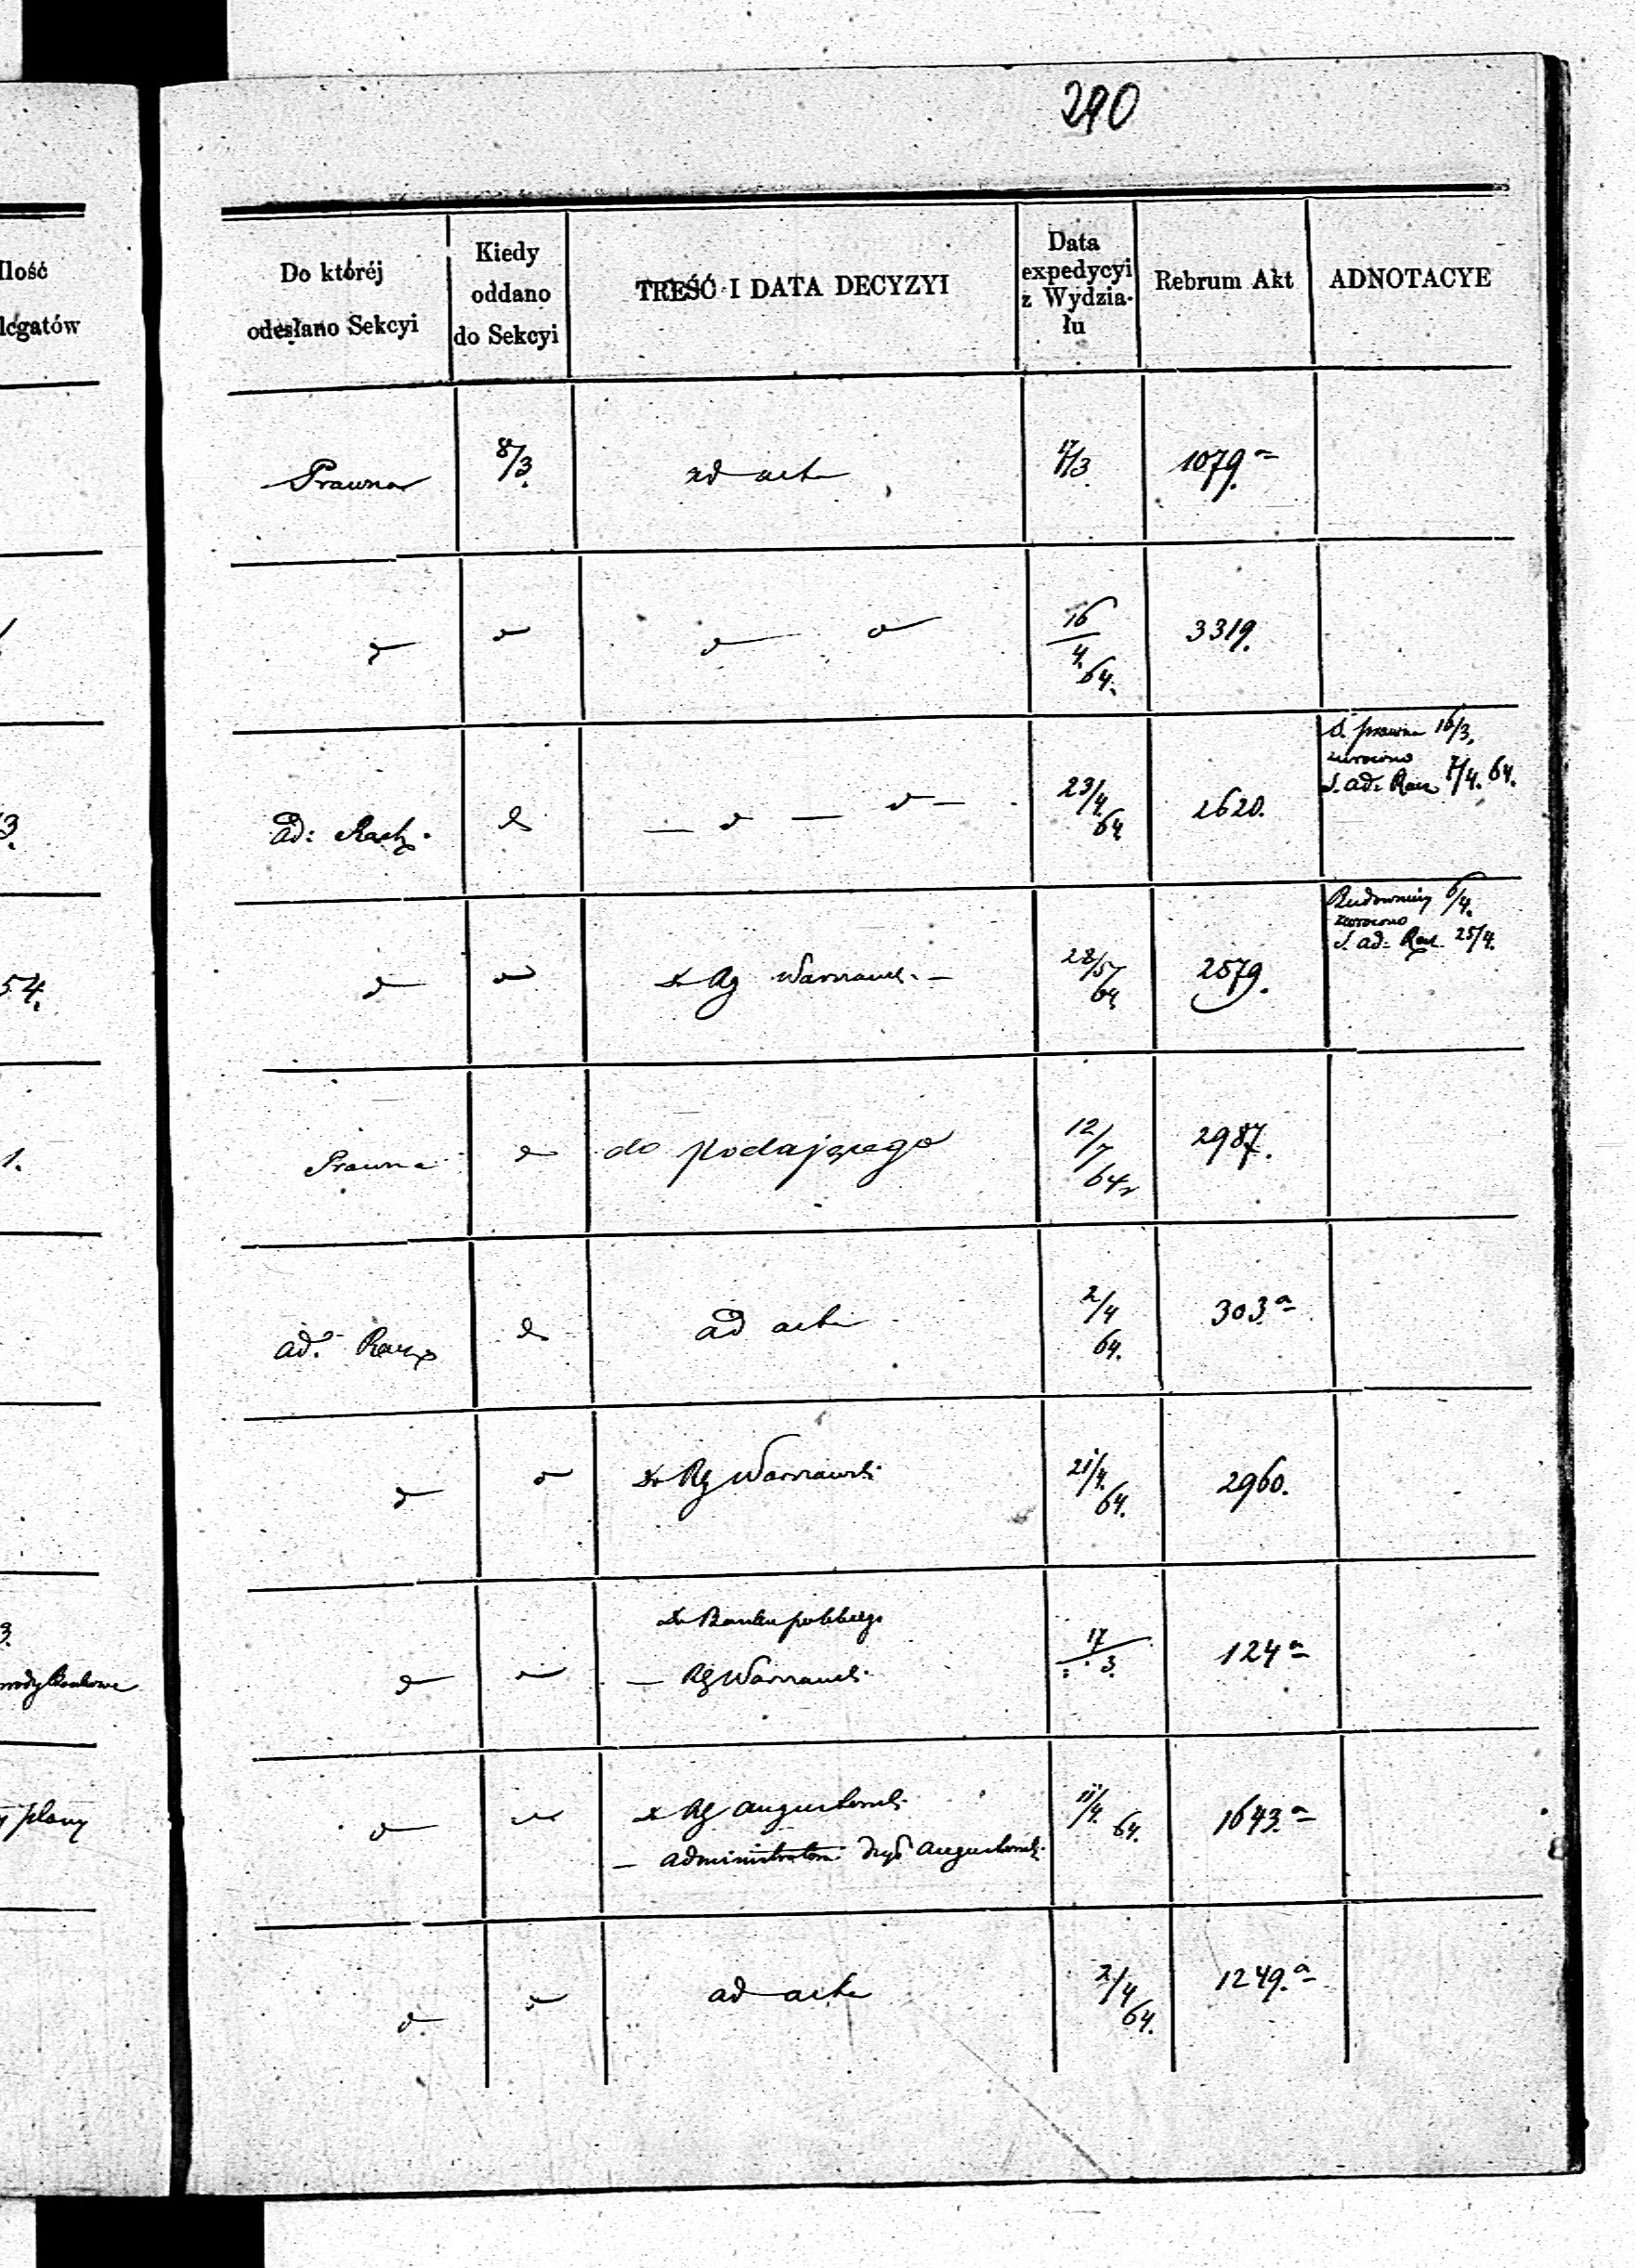 290
Ilość
legatów
3.
54.
1.
3.
plany
Do któréj
odesłano Sekcyi
Kiedy
oddano
do Sekcyi
TREŚĆ I DATA DECYZYI
Data
expedycyi
z Wydzia-
łu
Rebrum Akt
ADNOTACYE
Prawna 8/3. ad acta 17/3 1079.a
16/4. 64. 3319.
S. prawna 16/3.
zwrócono
S. ad: Rach 7/4. 64.
ad: Rach. 23/4 64 2620.
6/4.
zwrócono
S. ad: Rach 25/4.
Rg Warszawsk. 28/5 64 2579.
Prawna do podającego 12/7 64 2987.
ad: Rach ad acta 2/4 64. 303.a
Do Rg Warszawsk. 21/4. 64. 2960.
Do Banku polskiego
— Rg Warszawsk. 17/3. 124 a
Rg Augustowsk.
— administratora Augustowsk. 11/4. 64. 1643.a
ad acta 2/4 64. 1249.a